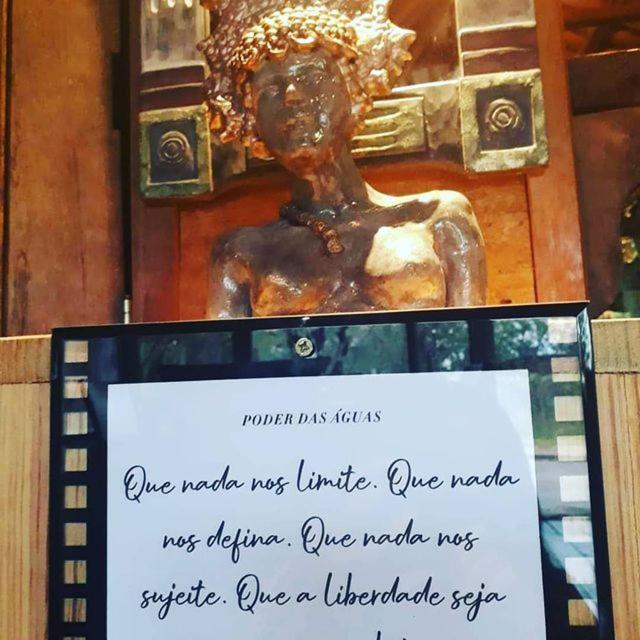 PODER DAS ÁGUAS
Que nada nos limite. Que nada
nos defina. Que nada nos
sujeite. Que a liberdade seja